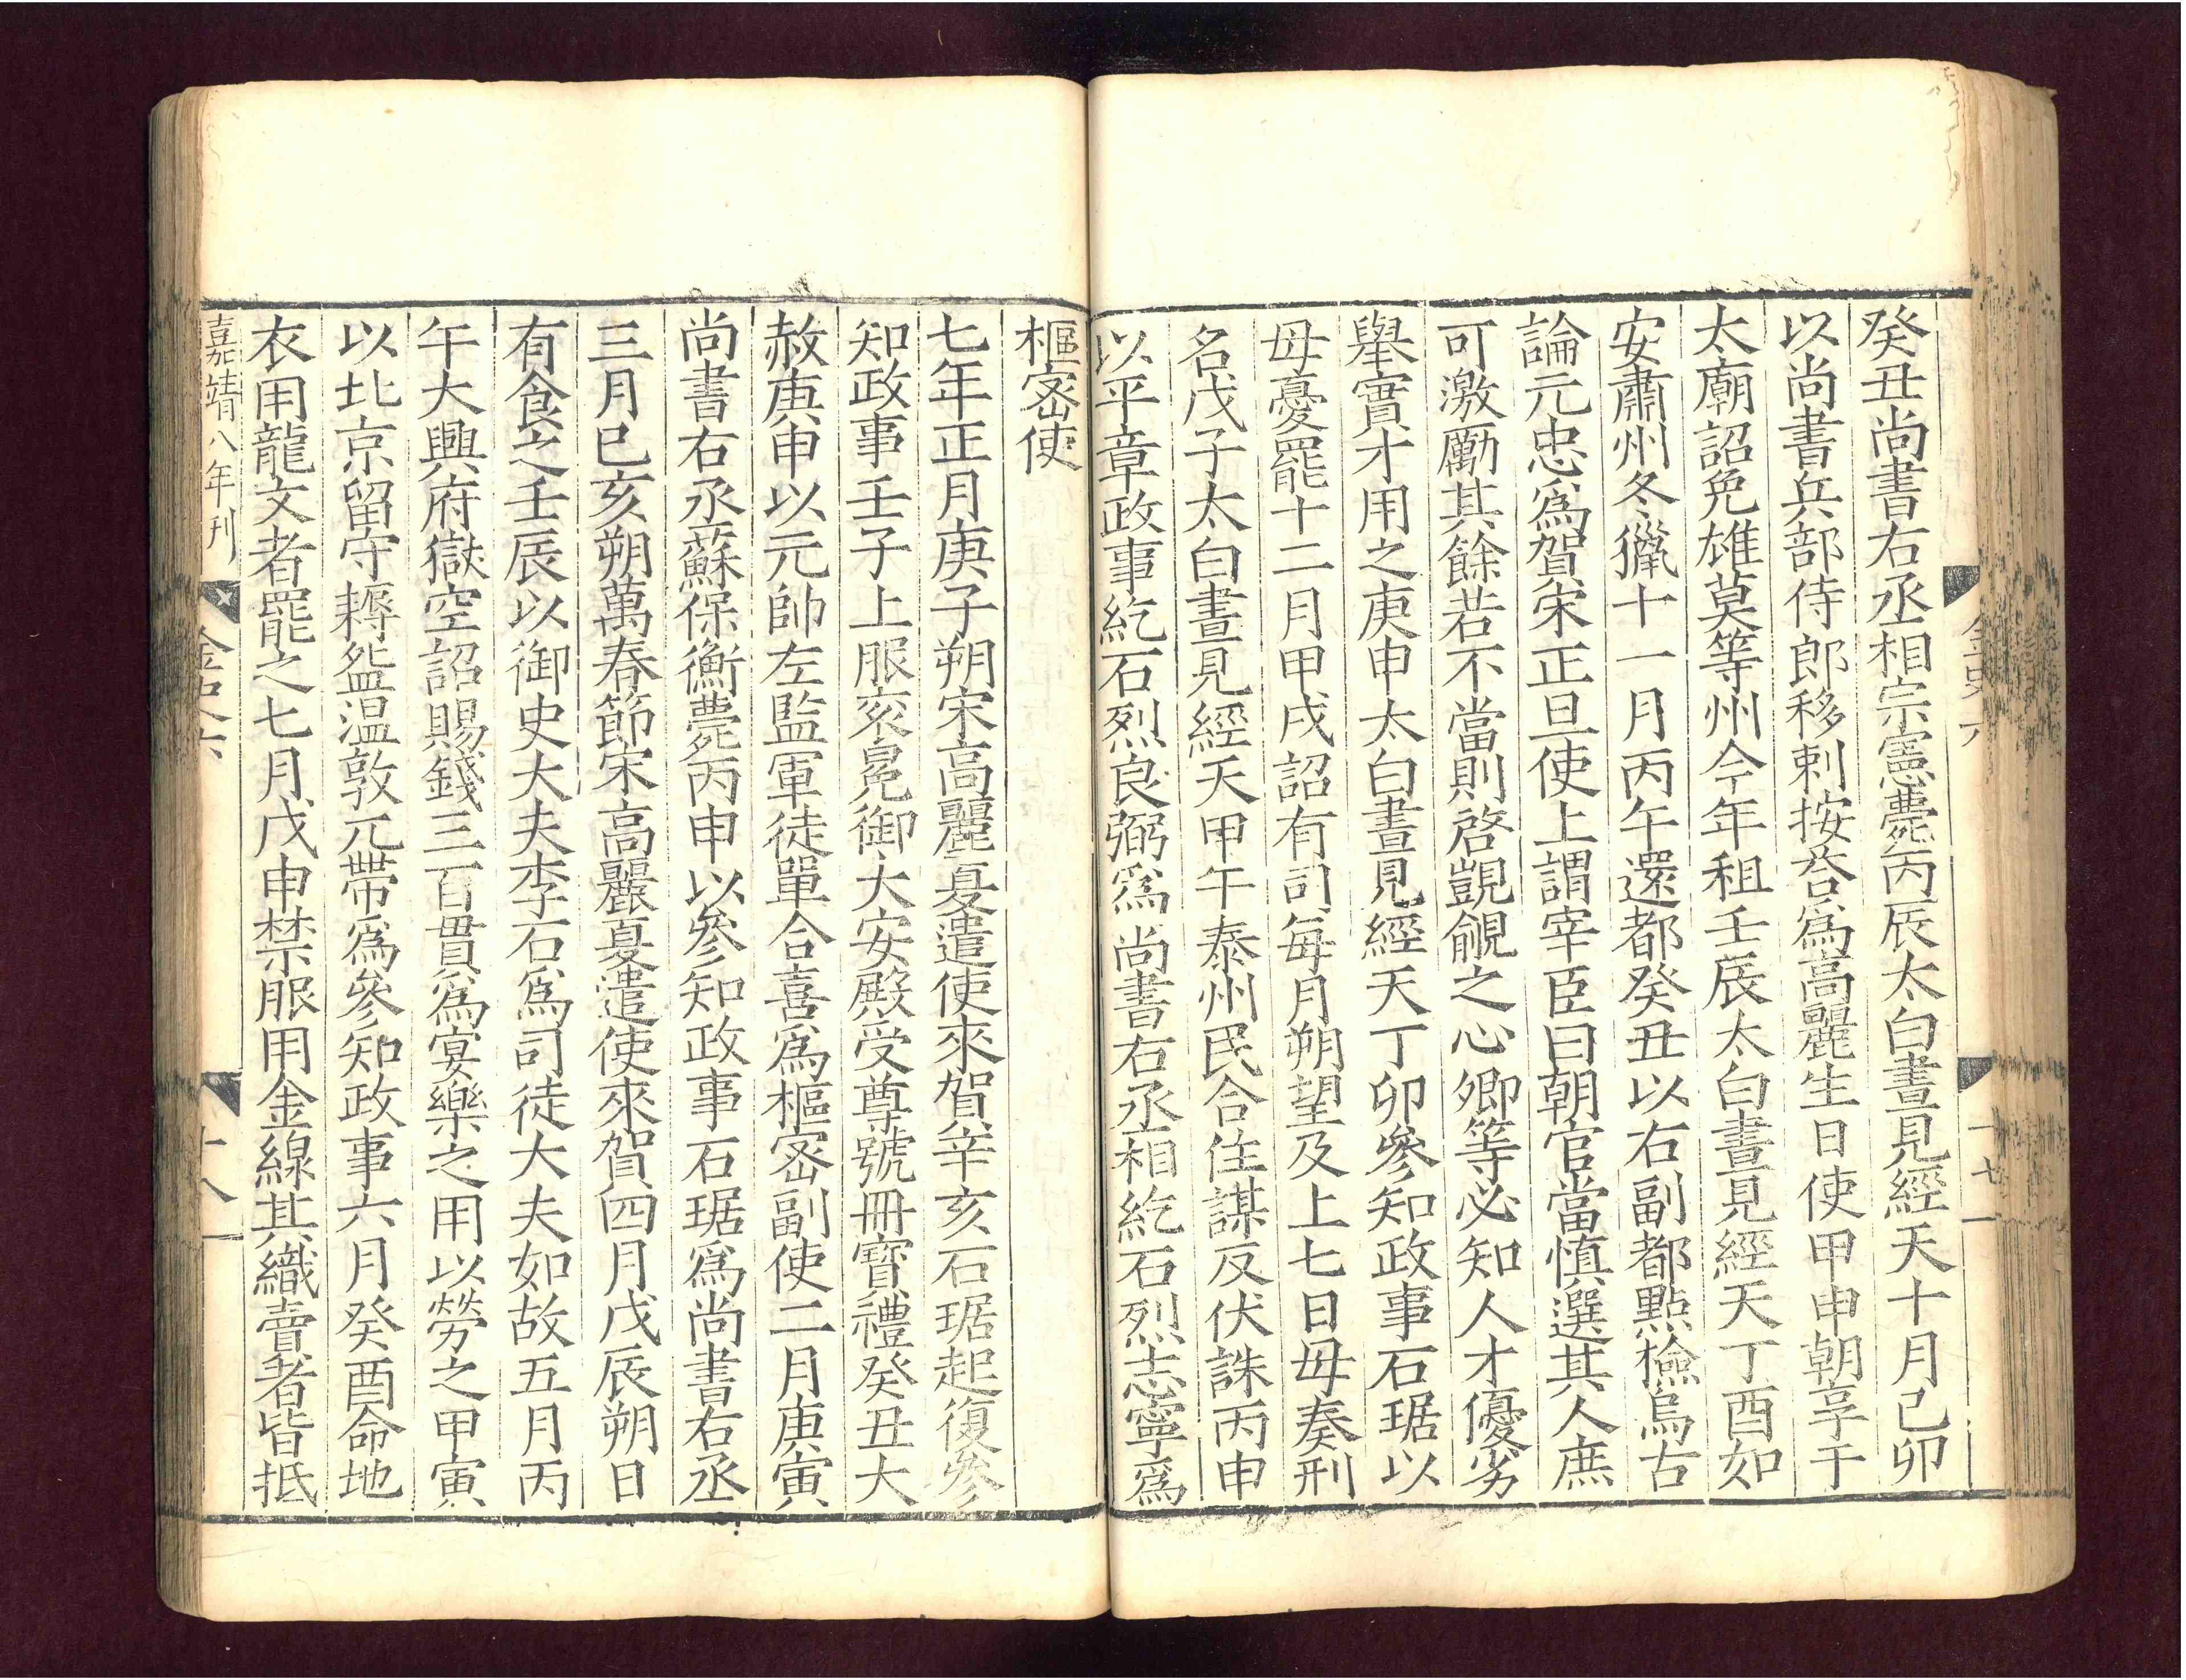 癸丑尚書右丞相宗憲薨丙辰太白晝見經天十月己卯
以尚書兵部侍郎移剌按荅爲高麗生日使甲申朝享于
太廟詔免雄莫等州今年租壬辰太白晝見經天丁酉如
安肅州冬獵十一月丙午還都癸丑以右副都點檢烏古
論元忠爲賀宋正旦使上謂宰臣曰朝官當慎選其人庶
可激勵其餘若不當則啓覬覦之心卿等必知人才優劣
舉實才用之庚申太白晝見經天丁卯參知政事石琚以
母憂罷十二月甲戌詔有司每月朔望及上七日毋奏刑
名戊子太白晝見經天甲午泰州民合住謀反伏誅丙申
以平章政事紇石烈良弼爲尚書右丞相紇石烈志寧爲
金史六
十七
樞密使
七年正月庚子朔宋高麗夏遣使來賀辛亥石琚起復參
知政事壬子上服衮冕御大安殿受尊號冊寶禮癸丑大
赦庚申以元帥左監軍徒單合喜爲樞密副使二月庚寅
尚書右丞蘇保衡薨丙申以參知政事石琚爲尚書右丞
三月己亥朔萬春節宋高麗夏遣使來賀四月戊辰朔日
有食之壬辰以御史大夫李石爲司徒大夫如故五月丙
午大興府獄空詔賜錢三百貫爲宴樂之用以勞之甲寅
以北京留守耨盌溫敦兀帶爲參知政事六月癸酉命地
衣用龍文者罷之七月戊申禁服用金線其織賣者皆抵
嘉靖八年刊
金史六
十八